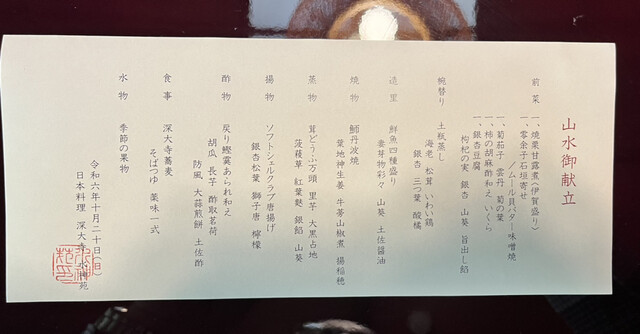 山水御献立
前菜 一、焼栗甘露煮(伊賀盛り)
一、零余子石垣寄せ
/ムール貝バター味噌焼
一、菊茄子 雲丹 菊の葉
一、柿の胡麻酢和え いくら
一、銀杏豆腐
枸杞の実 銀杏 山葵 旨出し餡
椀替り 土瓶蒸し
海老 松茸 いわい鶏
銀杏 三つ葉 酸橘
造里 鮮魚四種盛り
妻芽物彩々 山葵 土佐醤油
焼物 鰤丹波焼
葉地神生姜 牛蒡山椒煮 揚稲穂
蒸物 茸どうふ万頭 里芋 大黒占地
菠薐草 紅葉麩 銀餡 山葵
揚物 ソフトシェルクラブ唐揚げ
銀杏松葉 獅子唐 檸檬
酢物 戻り鰹霙あられ和え
胡瓜 長芋 酢取茗荷
防風 大蒜煎餅 土佐酢
食事 深大寺蕎麦
そばつゆ 薬味一式
水物 季節の果物
令和六年十月二十日(日)
日本料理 深大寺 水神苑